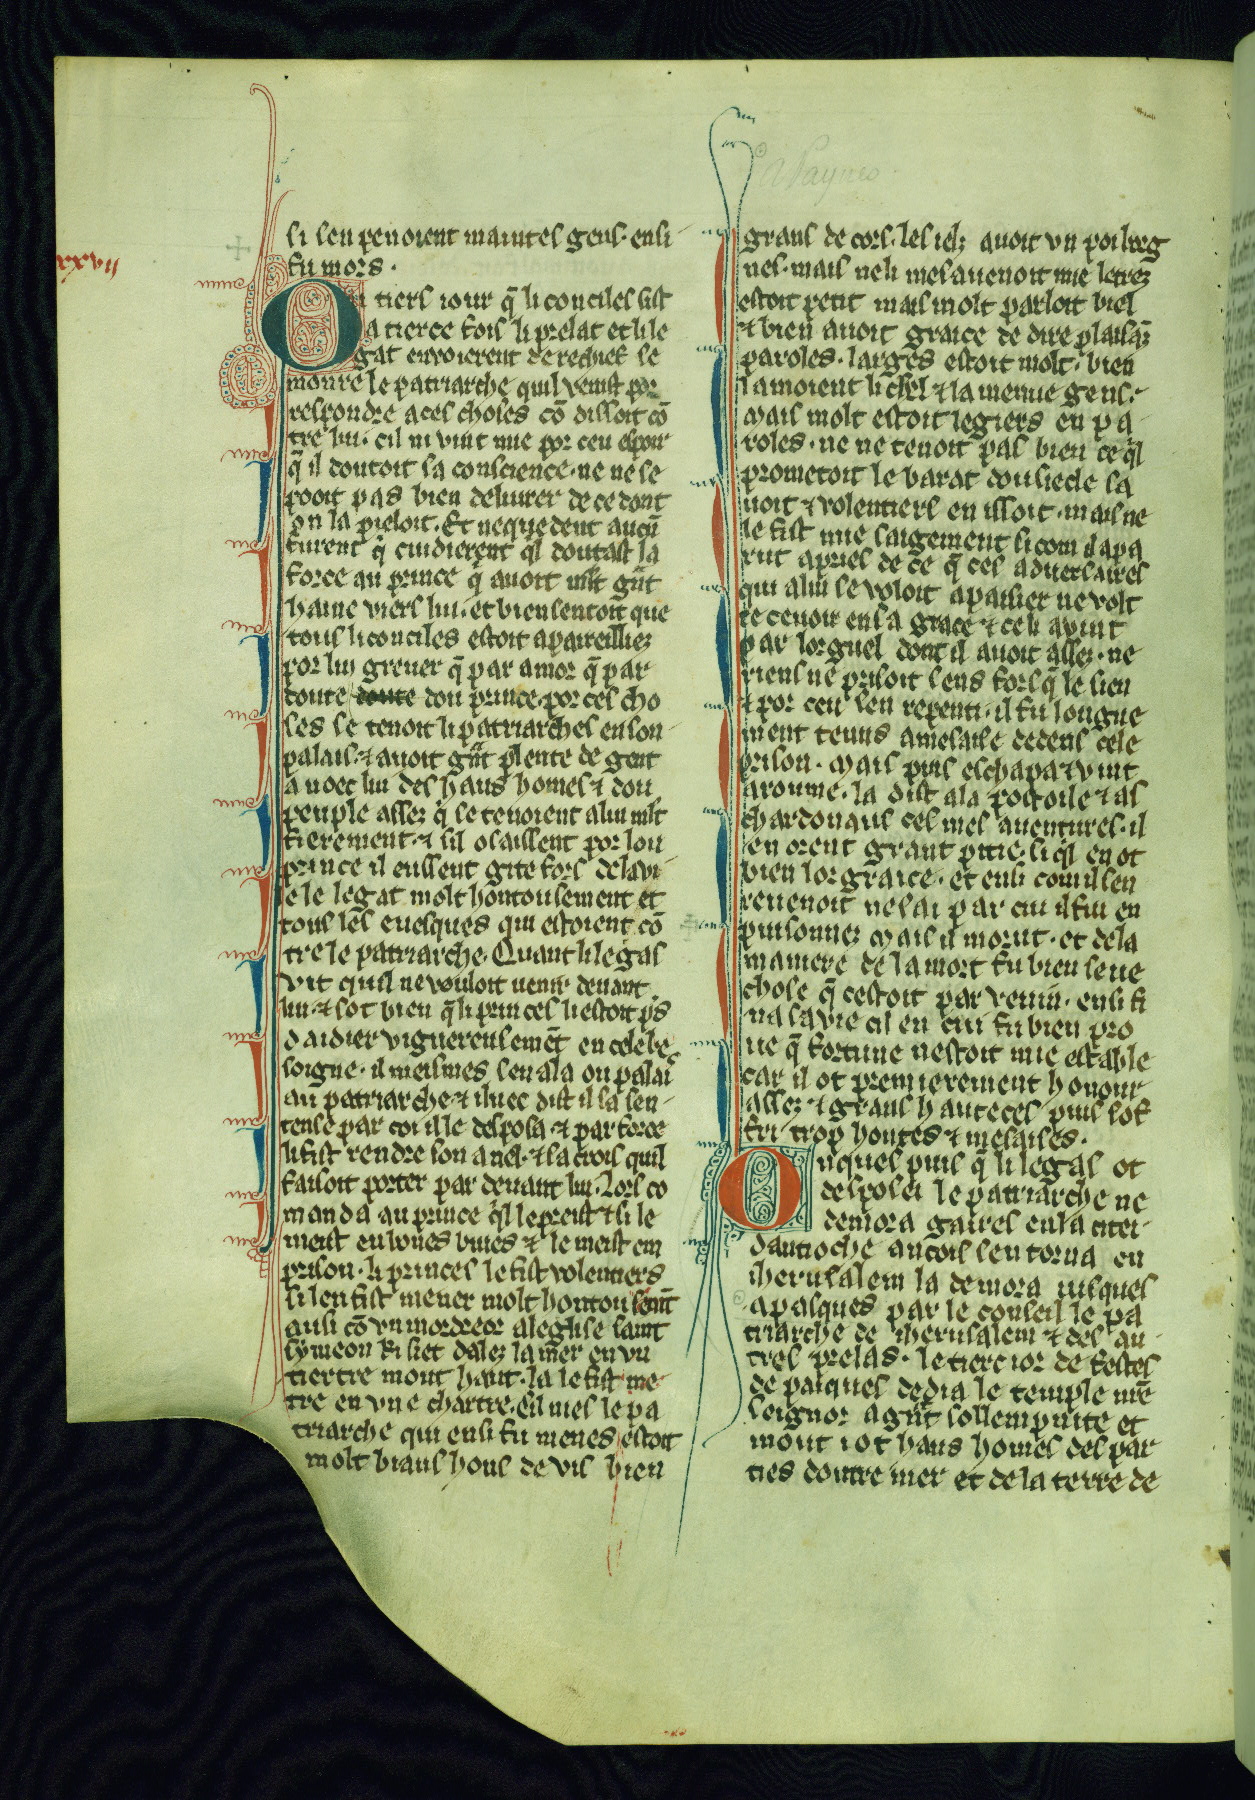 W Paynes
xxvii
si sen penoient maintes gens. ensi
fu mors.
Ou tiers iour q̄ li conciles sist
a tierce fois li prelat et li le
gat enuoierent de rechief se
monre le patriarche quil uenist por
respondre a ces choses cō dissoit cō
tre lui. cil ni uint mie por ceu espoir
q̄ il doutoit sa conscience. ne ne se
pooit pas bien deliurer de ce dont
on la peloit. Et nequedent aucū
furent q̄ cuidierent ql doutast la
force au prince q̄ auoit mlt g̃nt
haine uiers lui. et bien sentoit que
tous li conciles estoit apareilliez
por lui greuer q̄ par amor q̄ par
doute doute dou prince. por ces cho
ses se tenoit li patriarches en son
palais. & auoit g̃nt plente de gent
auoec lui des haus homes & dou
peuple assez q̄ se tenoient a lui mlt
fierement. & sil osaissent por lou
prince il eussent gite fors de la ui
e le legat molt hontousement et
tous les euesques qui estoient cō
tre le patriarche. Quant li legas
vit quil ne vouloit uenir deuant
lui. & sot bien q̄ li princes li estoit p̄s
daidier uiguereusemēt en cele be
soigne. il meismes sen ala ou palais
au patriarche & iluec dist il sa sen
tense par coi il le desposa & par force
li fist rendre son anel. & la crois quil
faisoit porter par deuant lui. Lors co
manda au prince ql le preist & si le
meist en bones buies & le meist em
prison. li princes le fist volentiers
si len fist mener molt hontousem̄t
ausi cō un mordreor a leglise saint
symeon ki siet dalez la mer en vn
tiertre mout haut. la le fist me
tre en vne chartre. Cil mes le pa
triarche qui ensi fu menes estoit
molt biaus hons de vis bien
grans de cors. les ielz auoit vn poi borg
nes. mais ne li mesauenoit mie letrez
estoit petit mais molt parloit biel
& bien auoit graice de dire plaisās
paroles. larges estoit molt. bien
lamoient li chꝉr & la menue gens.
Mais molt estoit legiers en pa
roles. ne ne tenoit pas bien ce ql
prometoit le barat dou siecle sa
uoit & volentiers en issoit. mais ne
le fist mie saigement si com il apa
rut apries de ce q̄ ces aduersaires
qui a lui se voloit apaisier ne volt
receuoir en sa grace & ce li auint
par lorguel dont il auoit assez. ne
riens ne prisoit sens fors q̄ le sien
& por ceu sen repenti. il fu longue
ment tenus a mesaise dedens cele
prison. Mais puis eschapa & vint
a roume. la dist a la postoile & as
chardonaus ces mes auentures. il
en orent grant pitie. si ql en ot
bien lor graice. et ensi com il sen
reuenoit ne sai par cui il fu en
puisonnez Mais il morut. et de la
maniere de la mort fu bien seue
chose q̄ cestoit par venin. ensi fi
na sa vie cil en cui fu bien pro
ue q̄ fortune nestoit mie estable
car il ot premierement honour
assez & grans hauteces puis sof
fri trop hontes & mesaises.
Onques puis q̄ li legas ot
desposei le patriarche ne
demora gaires en la citei
dantioche ancois sen torna en
iherusalem la demora iusques
a pasques par le conseil le pa
triarche de iherusalem & des au
tres prelas. le tierc ior de festes
de paiques dedia le temple nr̄e
seignor a g̃nt sollempnite et
mout i ot haus homes des par
ties doutre mer et de la terre de